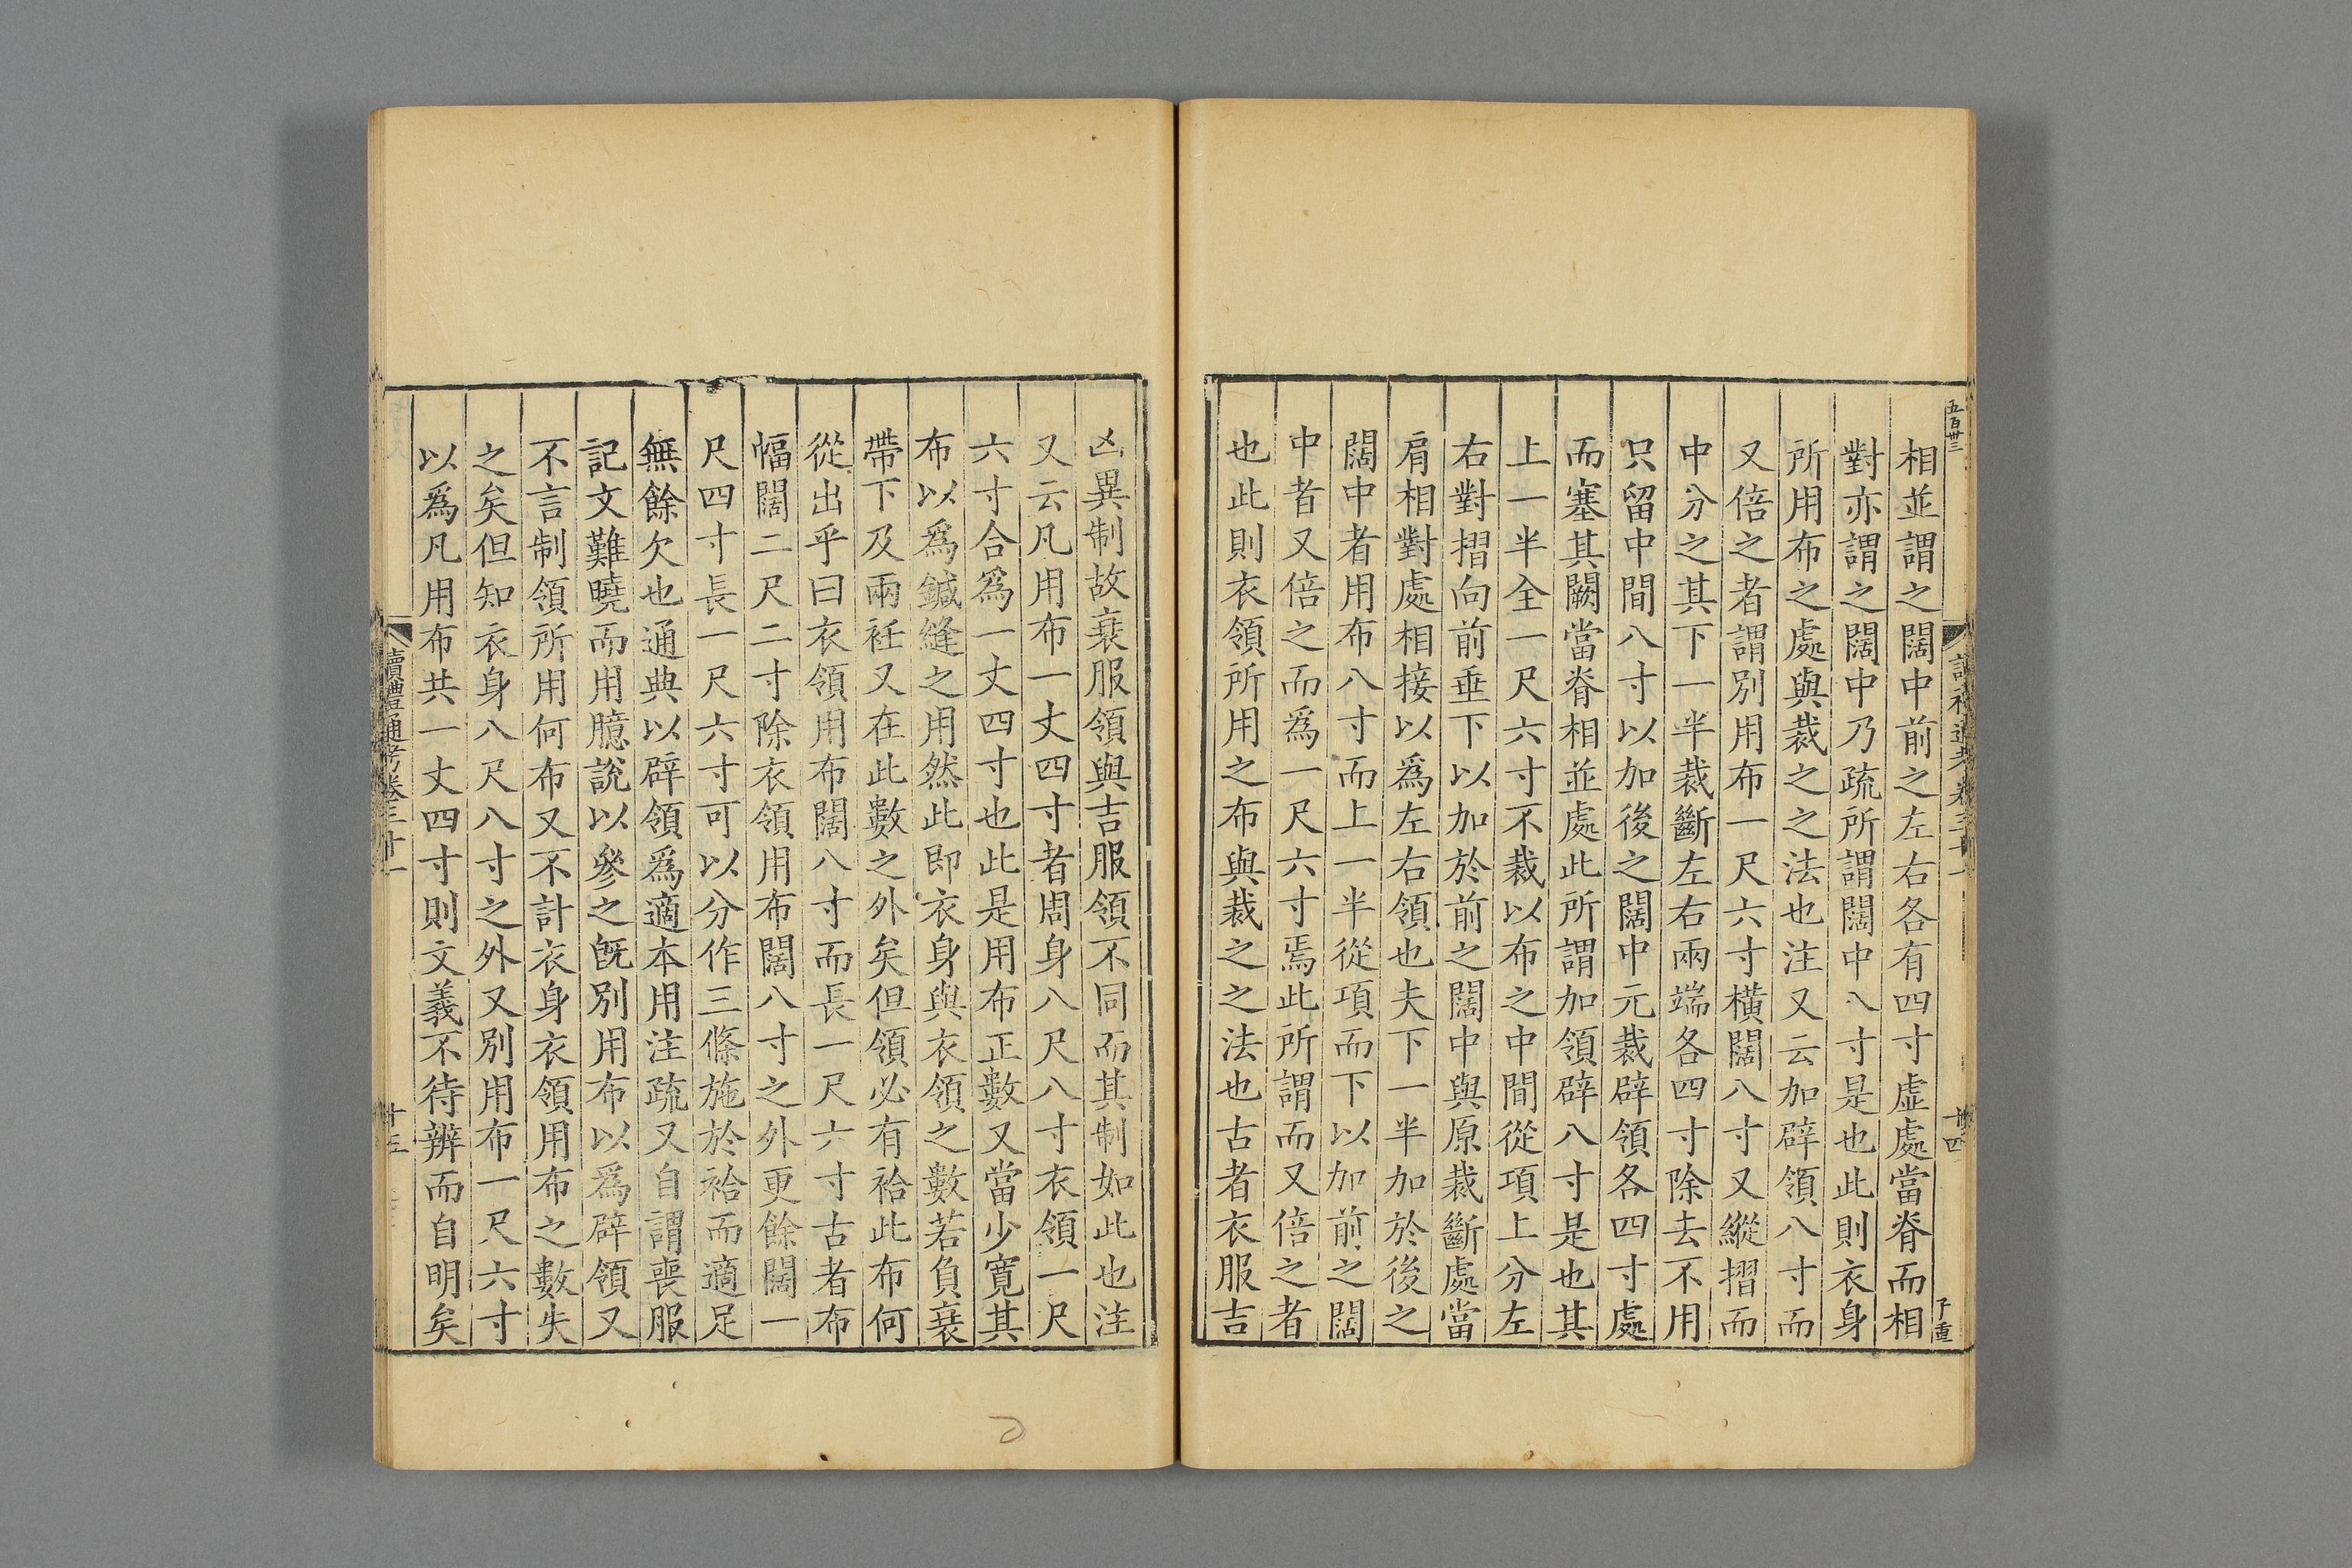 五百卅三
相並謂之闊中前之左右各有四寸虛處當脊而相
對亦謂之闊中乃疏所謂闊中八寸是也此則衣身
所用布之處與裁之之法也注又云加辟領八寸而
又倍之者謂別用布一尺六寸橫闊八寸又縱摺而
中分之其下一半裁斷左右兩端各四寸除去不用
只留中間八寸以加後之闊中元裁辟領各四寸處
而塞其闕當脊相並處此所謂加領辟八寸是也其
上一半全一尺六寸不裁以布之中間從項上分左
右對摺向前垂下以加於前之闊中與原裁斷處當
肩相對處相接以為左右領也夫下一半加於後之
闊中者用布八寸而上一半從項而下以加前之闊
中者又倍之而為一尺六寸焉此所謂而又倍之者
也此則衣領所用之布與裁之之法也古者衣服吉
凶異制故衰服領與吉服領不同而其制如此也注
又云凡用布一丈四寸者周身八尺八寸衣領一尺
六寸合為一丈四寸也此是用布正數又當少寬其
布以為鍼縫之用然此即衣身與衣領之數若負衰
帶下及兩衽又在此數之外矣但領必有袷此布何
從出乎曰衣領用布闊八寸而長一尺六寸古者布
幅闊二尺二寸除衣領用布闊八寸之外更餘闊一
尺四寸長一尺六寸可以分作三條施於袷而適足
無餘欠也通典以辟領為適本用注疏又自謂喪服
記文難曉而用臆說以參之旣別用布以為辟領又
不言制領所用何布又不計衣身衣領用布之數失
之矣但知衣身八尺八寸之外又別用布一尺六寸
以為凡用布共一丈四寸則文義不待辨而自明矣
讀禮通考卷三十一
十五